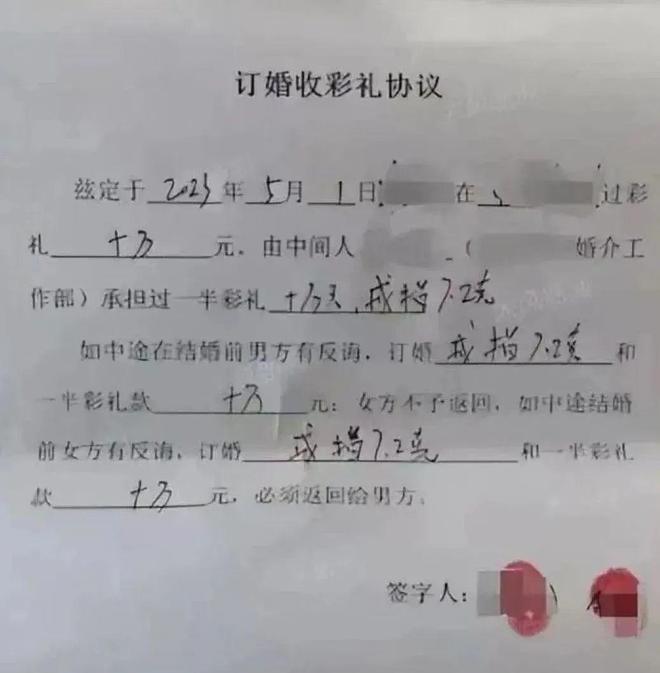 订婚收彩礼协议
兹定于 2023 年 5 月 1 日 在 过彩
礼 十万 元. 由中间人 ( 婚介工
作部) 承担过一半彩礼 十万元, 戒指7.2克
如中途在结婚前男方有反诲, 订婚 戒指7.2克 和
一半彩礼款 十万 元; 女方不予返回, 如中途结婚
前女方有反诲, 订婚 戒指7.2克 和一半彩礼
款 十万 元, 必须返回给男方.
签字人: